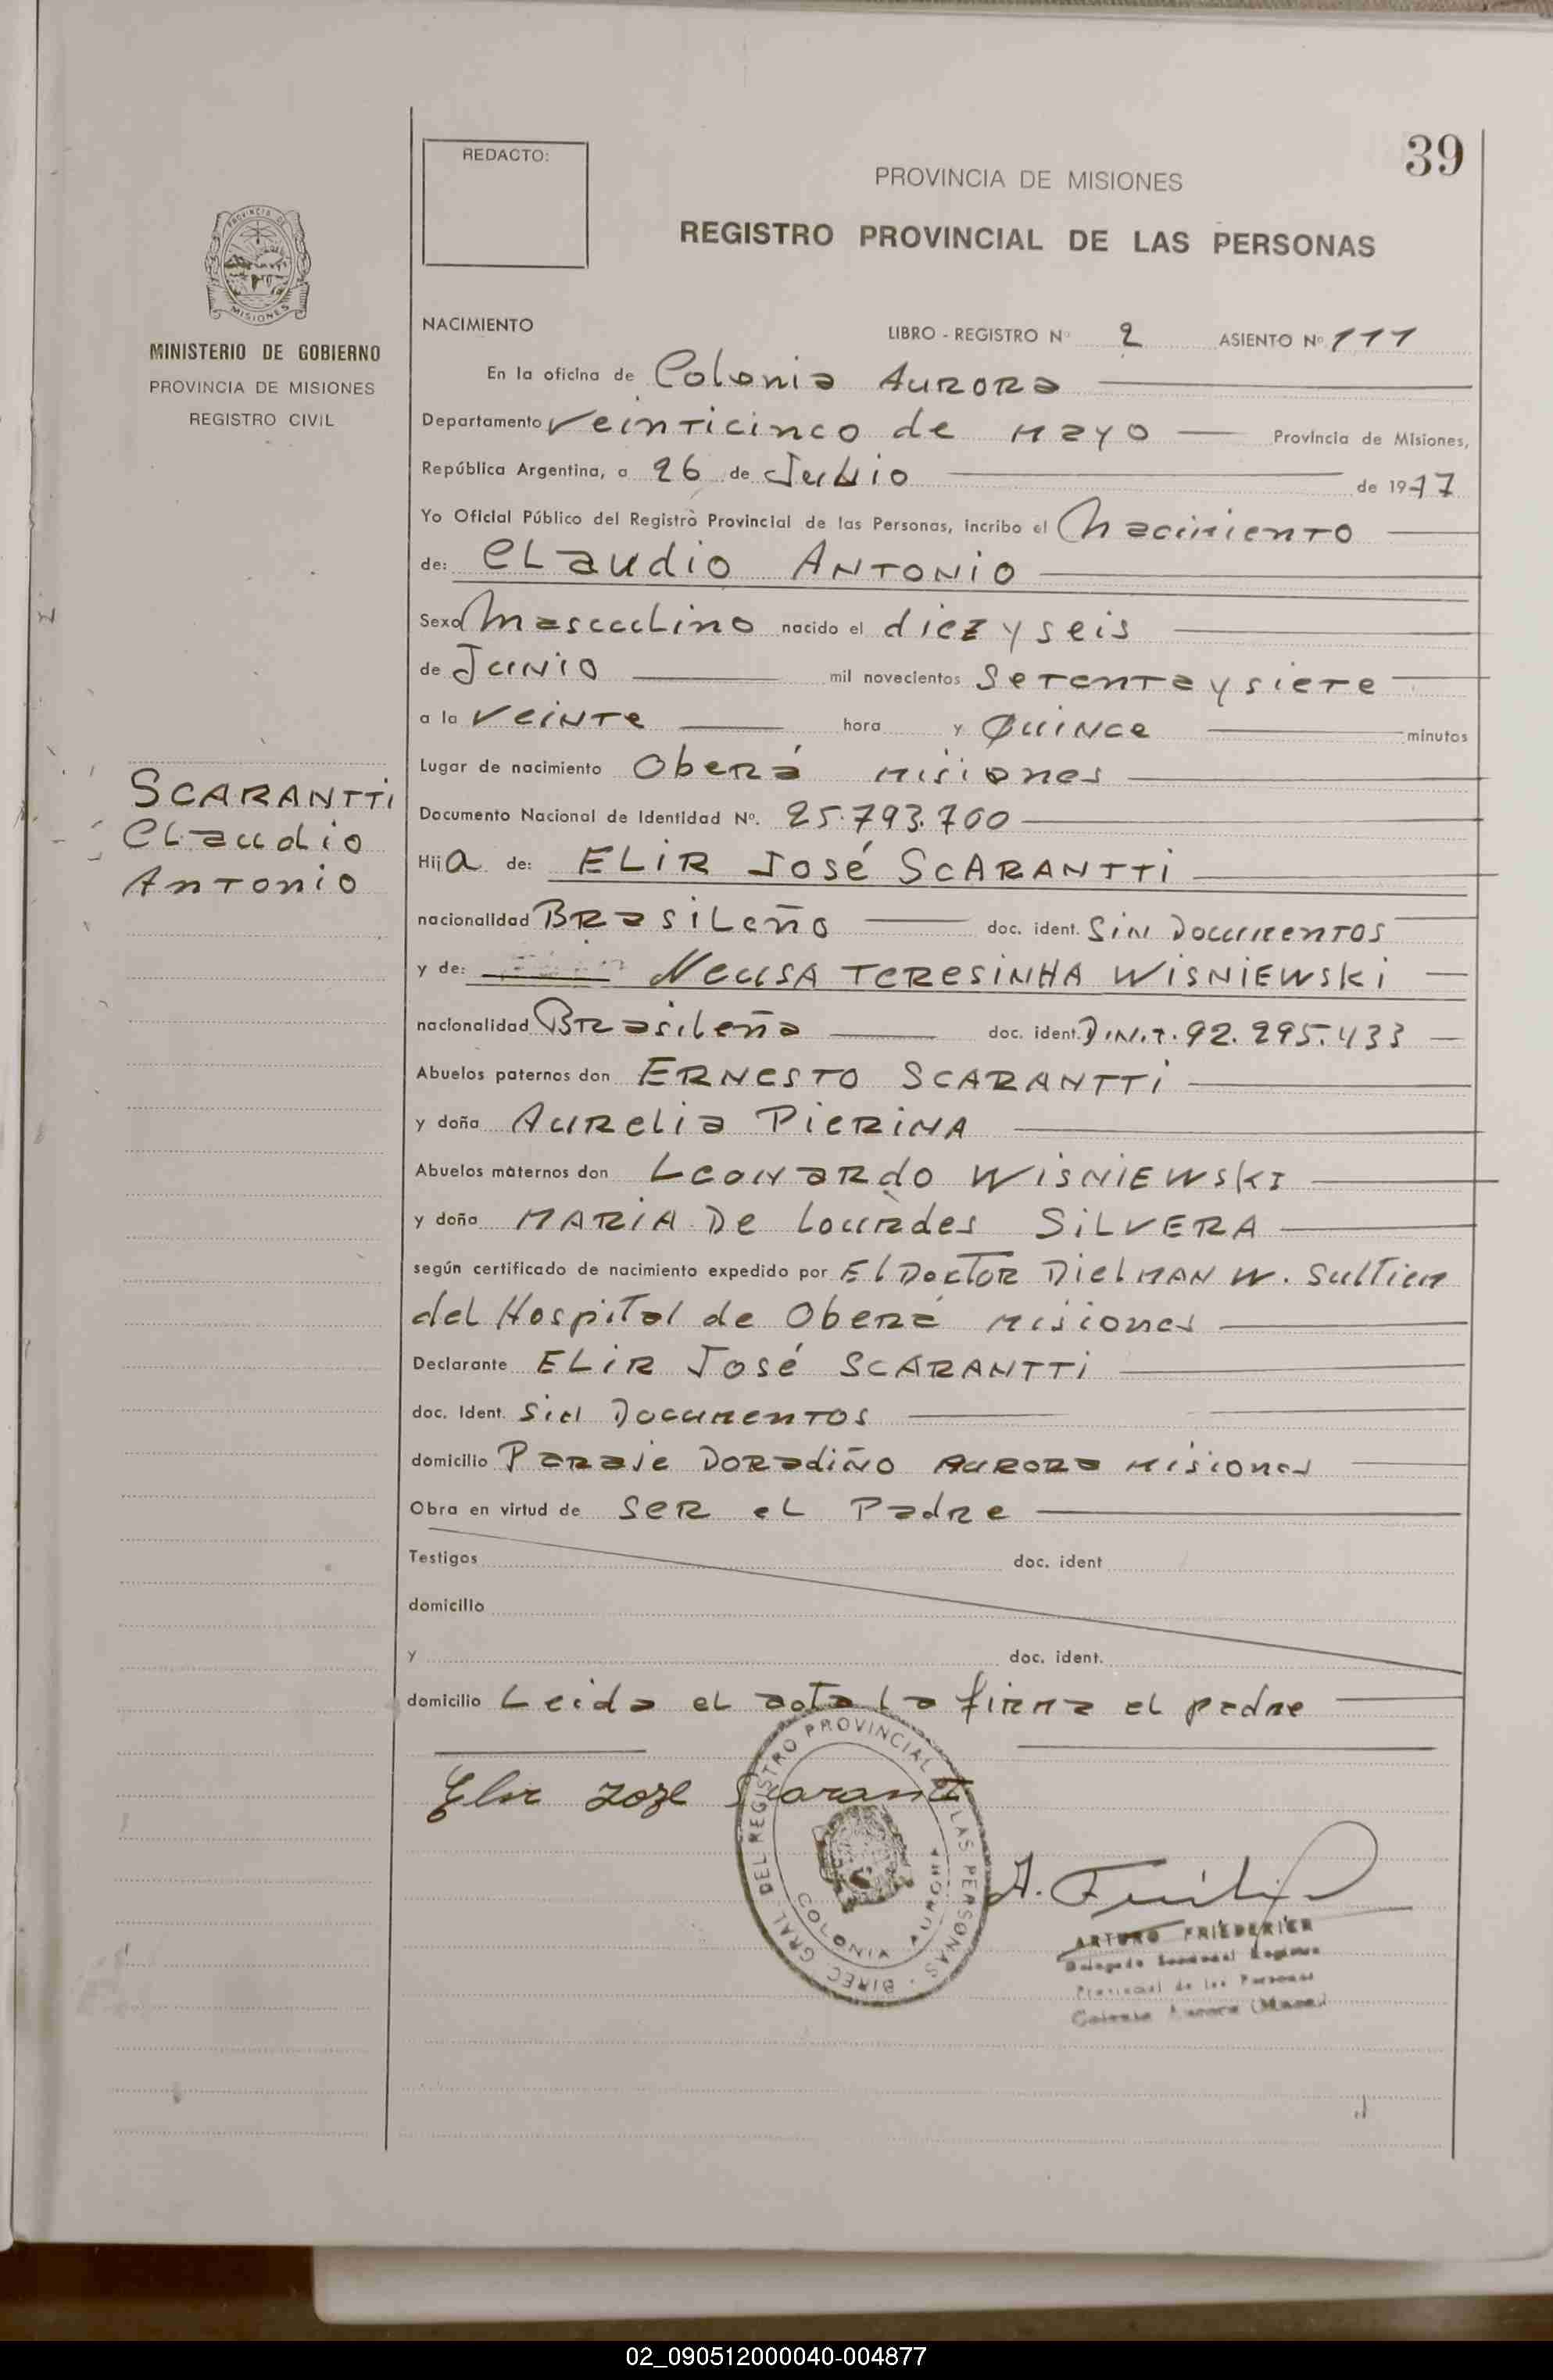 39
REDACTO:
PROVINCIA DE MISIONES
REGISTRO PROVINCIAL DE LAS PERSONAS
PROVINCIA DE
MISIONES
MINISTERIO DE GOBIERNO
PROVINCIA DE MISIONES
REGISTRO CIVIL
NACIMIENTO LIBRO - REGISTRO Nº 2 ASIENTO Nº 111
En la oficina de Colonia Aurora
Departamento Veinticinco de Mayo Provincia de Misiones,
República Argentina, a 26 de Julio de 1977
Yo Oficial Público del Registro Provincial de las Personas, incribo el Nacimiento
de: Claudio Antonio
Sexo Masculino nacido el diez y seis
de Junio mil novecientos Setenta y siete
a la Veinte hora y Quince minutos
Lugar de nacimiento Oberá Misiones
SCARANTTI
Claudio
Antonio
Documento Nacional de Identidad Nº. 25.793.700
Hija de: ELIR José SCARANTTI
nacionalidad Brasileño doc. ident. Sin Documentos
y de: Neusa Teresinha Wisniewski
nacionalidad Brasileña doc. ident. D.N.I. 92.295.433
Abuelos paternos don ERNESTO SCARANTTI
y doña Aurelia Pierina
Abuelos maternos don Leonardo Wisniewski
y doña MARIA De Lourdes SILVERA
según certificado de nacimiento expedido por El Doctor Dielman W.
del Hospital de Oberá Misiones
Declarante ELIR José SCARANTTI
doc. Ident. Sin Documentos
domicilio Paraje Doradiño Aurora Misiones
Obra en virtud de ser el Padre
Testigos doc. ident
domicilio
y doc. ident.
domicilio Leida el acta la firma el padre
Elir Joze Scarantti
DIREC. GRAL. DEL REGISTRO PROVINCIAL DE LAS PERSONAS
COLONIA AURORA
ARTURO FRIEDERIER
Delegado Seccional Registro
Provincial de las Personas
Colonia Aurora (Mnes.)
02_090512000040-004877